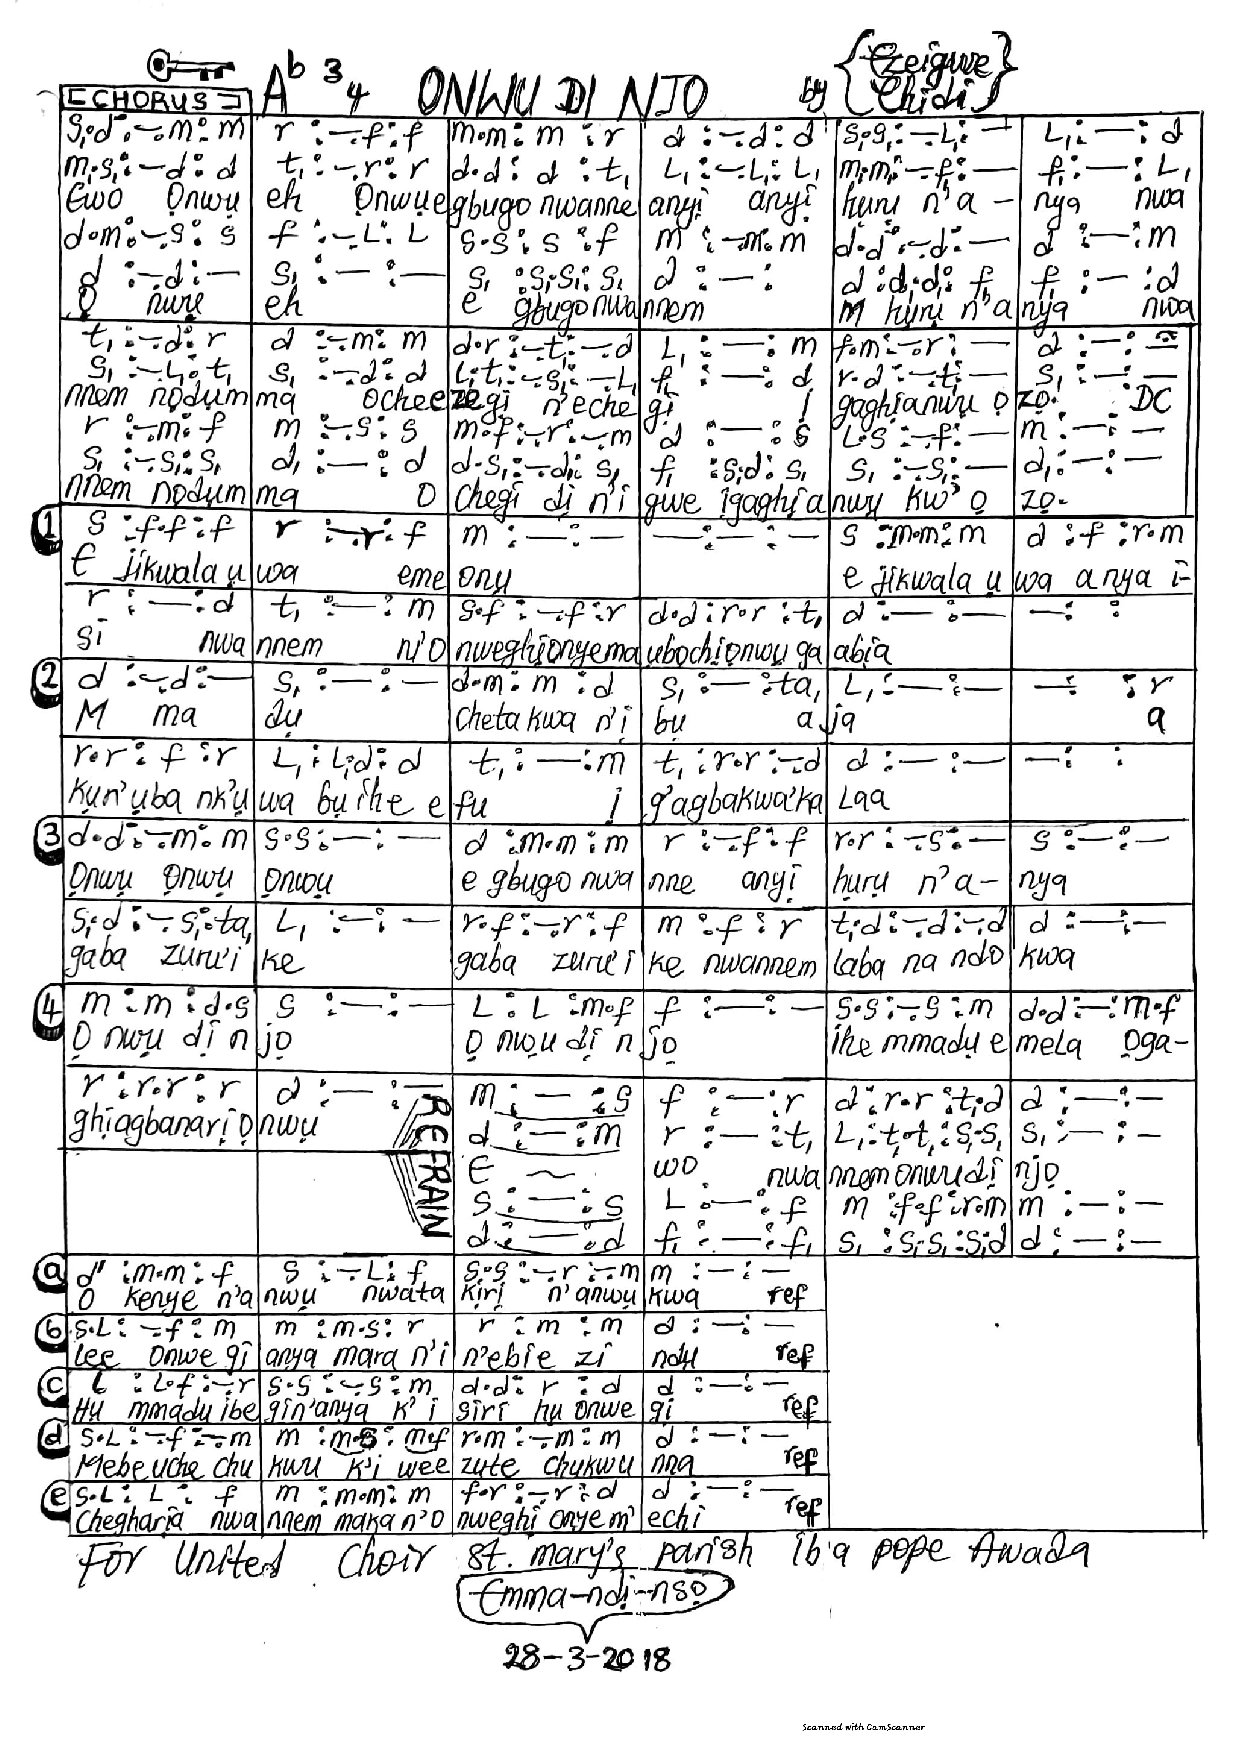 CHORUS Ab 3 4 ONWU DI NJO by {Ezeigwe Chidi}
s₁.d :–.m : m | r :–.f : f | m.m : m : r | d :–.d : d | s₁.s₁ :–.L₁ :– | L₁ :– : d
m₁.s₁ :–.d : d | t₁ :–.r : r | d.d : d : t₁ | L₁ :–.L₁ : L₁ | m₁.m₁ :–.f₁ :– | f₁ :– : L₁
Ewo Ọnwụ | eh Ọnwụe | gbugo nwanne | anyị anyị | hụrụ n'a – | nya nwa
d.m :–.s : s | f :–.L : L | s.s : s : f | m :–.m : m | d.d :–.d :– | d :– : m
d :–.d :– | s₁ :– :– | s₁ :s₁.s₁ : s₁ | d :– : | d :d₁.d₁ : f₁ | f₁ :– : d
Ọ nwụ | eh | e gbugo nwa | nnem | M hụrụ n'a | nya nwa
t₁ :–.d : r | d :–.m : m | d.r :–.t₁ :–.d | L₁ :– : m | f.m :–.r :– | d :– :–
s₁ :–.L₁ : t₁ | s₁ :–.d : d | L₁.t₁ :–.s₁ :–.L₁ | f₁ :– : d | r.d :–.t₁ :– | s₁ :– :–
nnem nọdụm | ma ochee | zegị n'eche | gị Ị | gaghịanwụ ọ | zọ. DC
r :–.m : f | m :–.s : s | m.f :–.r :–.m | d :– : s | L.s :–.f :– | m :– :–
s₁ :–.s₁ : s₁ | d₁ :– : d | d.s₁ :–.d₁ : s₁ | f₁ :s₁.d : s₁ | s₁ :–.s₁ :– | d₁ :– :–
nnem nọdụm | ma O | chegị dị n'i | gwe ịgaghịa | nwụ kw' ọ | zọ-
1 s :f.f : f | r :–.r : f | m :– :– | – :– :– | s :m.m : m | d :f :r.m
E jikwala ụ | wa eme | onụ | | e jikwala ụ | wa anya i-
r :– : d | t₁ :– : m | s.f :–.f : r | d.d : r.r : t₁ | d :– :– | – : :
si nwa | nnem n'O | nweghịonyema | ubochịọnwụ ga | abịa
2 d :–.d :– | s₁ :– :– | d.m : m : d | s₁ :– : ta₁ | L₁ :– :– | – : : r
M ma | dụ | Cheta kwa n'ị | bụ a | ja | a
r.r : f : r | L₁ : L₁.d : d | t₁ :– : m | t₁ : r.r :–.d | d :– :– | – : :
kụn'ụba nk'ụ | wa bu ihe e | fu Ị | g'agbakwa'ka | Laa
3 d.d :–.m : m | s.s :– :– | d :m.m : m | r :–.f : f | r.r :–.s :– | s :– :–
Ọnwụ Ọnwụ | Ọnwụ | e gbugo nwa | nne anyị | hụrụ n'a – | nya
s₁.d :–.s₁ : ta₁ | L₁ :– :– | r.f :–.r : f | m : f : r | t₁.d :–.d :–.d | d :– :–
gaba zuru'i | ke | gaba zuru'i | ke nwannem | laba na ndo | kwa
4 m : m : d.s | s :– :– | L : L :m.f | f :– :– | s.s :–.s : m | d.d :– : m.f
Ọ nwụ dị n | jọ | Ọ nwụ dị n | jọ | ihe mmadụ e | meLa Ọga-
r :r.r : r | d :– :– | REFRAIN | m :– : s | f :– : r | d :r.r :t₁.d | d :– :–
ghịagbanarị Ọ | nwụ | d :– : m | r :– : t₁ | L₁ :t₁.t₁ :s₁.s₁ | s₁ :– :–
E ~ | wo nwa | nnem onwu dị | njọ
s :– : s | L :– : f | m :f.f :r.m | m :– :–
d :– : d | f₁ :– : f₁ | s₁ :s₁.s₁ :s₁.d | d :– :–
a d' :m.m : f | s :–.L : f | s.s :–.r :–.m | m :– :–
O kenye n'a | nwụ nwata | Kịrị n'anwụ | kwa ref
b s.L :–.f : m | m :m.s : r | r : m : m | d :– :–
Lee onwe gị | anya mara n'i | n'ebie zi | ndụ ref
c L :L.f :–.r | s.s :–.s : m | d.d : r : d | d :– :–
Hụ mmadụ ibe | gin'anya k' i | siri hụ onwe | gi ref
d s.L :–.f :–.m | m :m.s : m.f | r.m :–.m : m | d :– :–
Mebe uche chu | kwu k'i wee | zute chukwu | nna ref
e s.L : L : f | m :m.m : m | f.r :–.r : d | d :– :–
Chegharịa nwa | nnem maka n'O | nweghị onye m' | echi ref
For United Choir St. mary's parish Ib'a pope Awada
Emma-ndi-nso
28-3-2018
Scanned with CamScanner